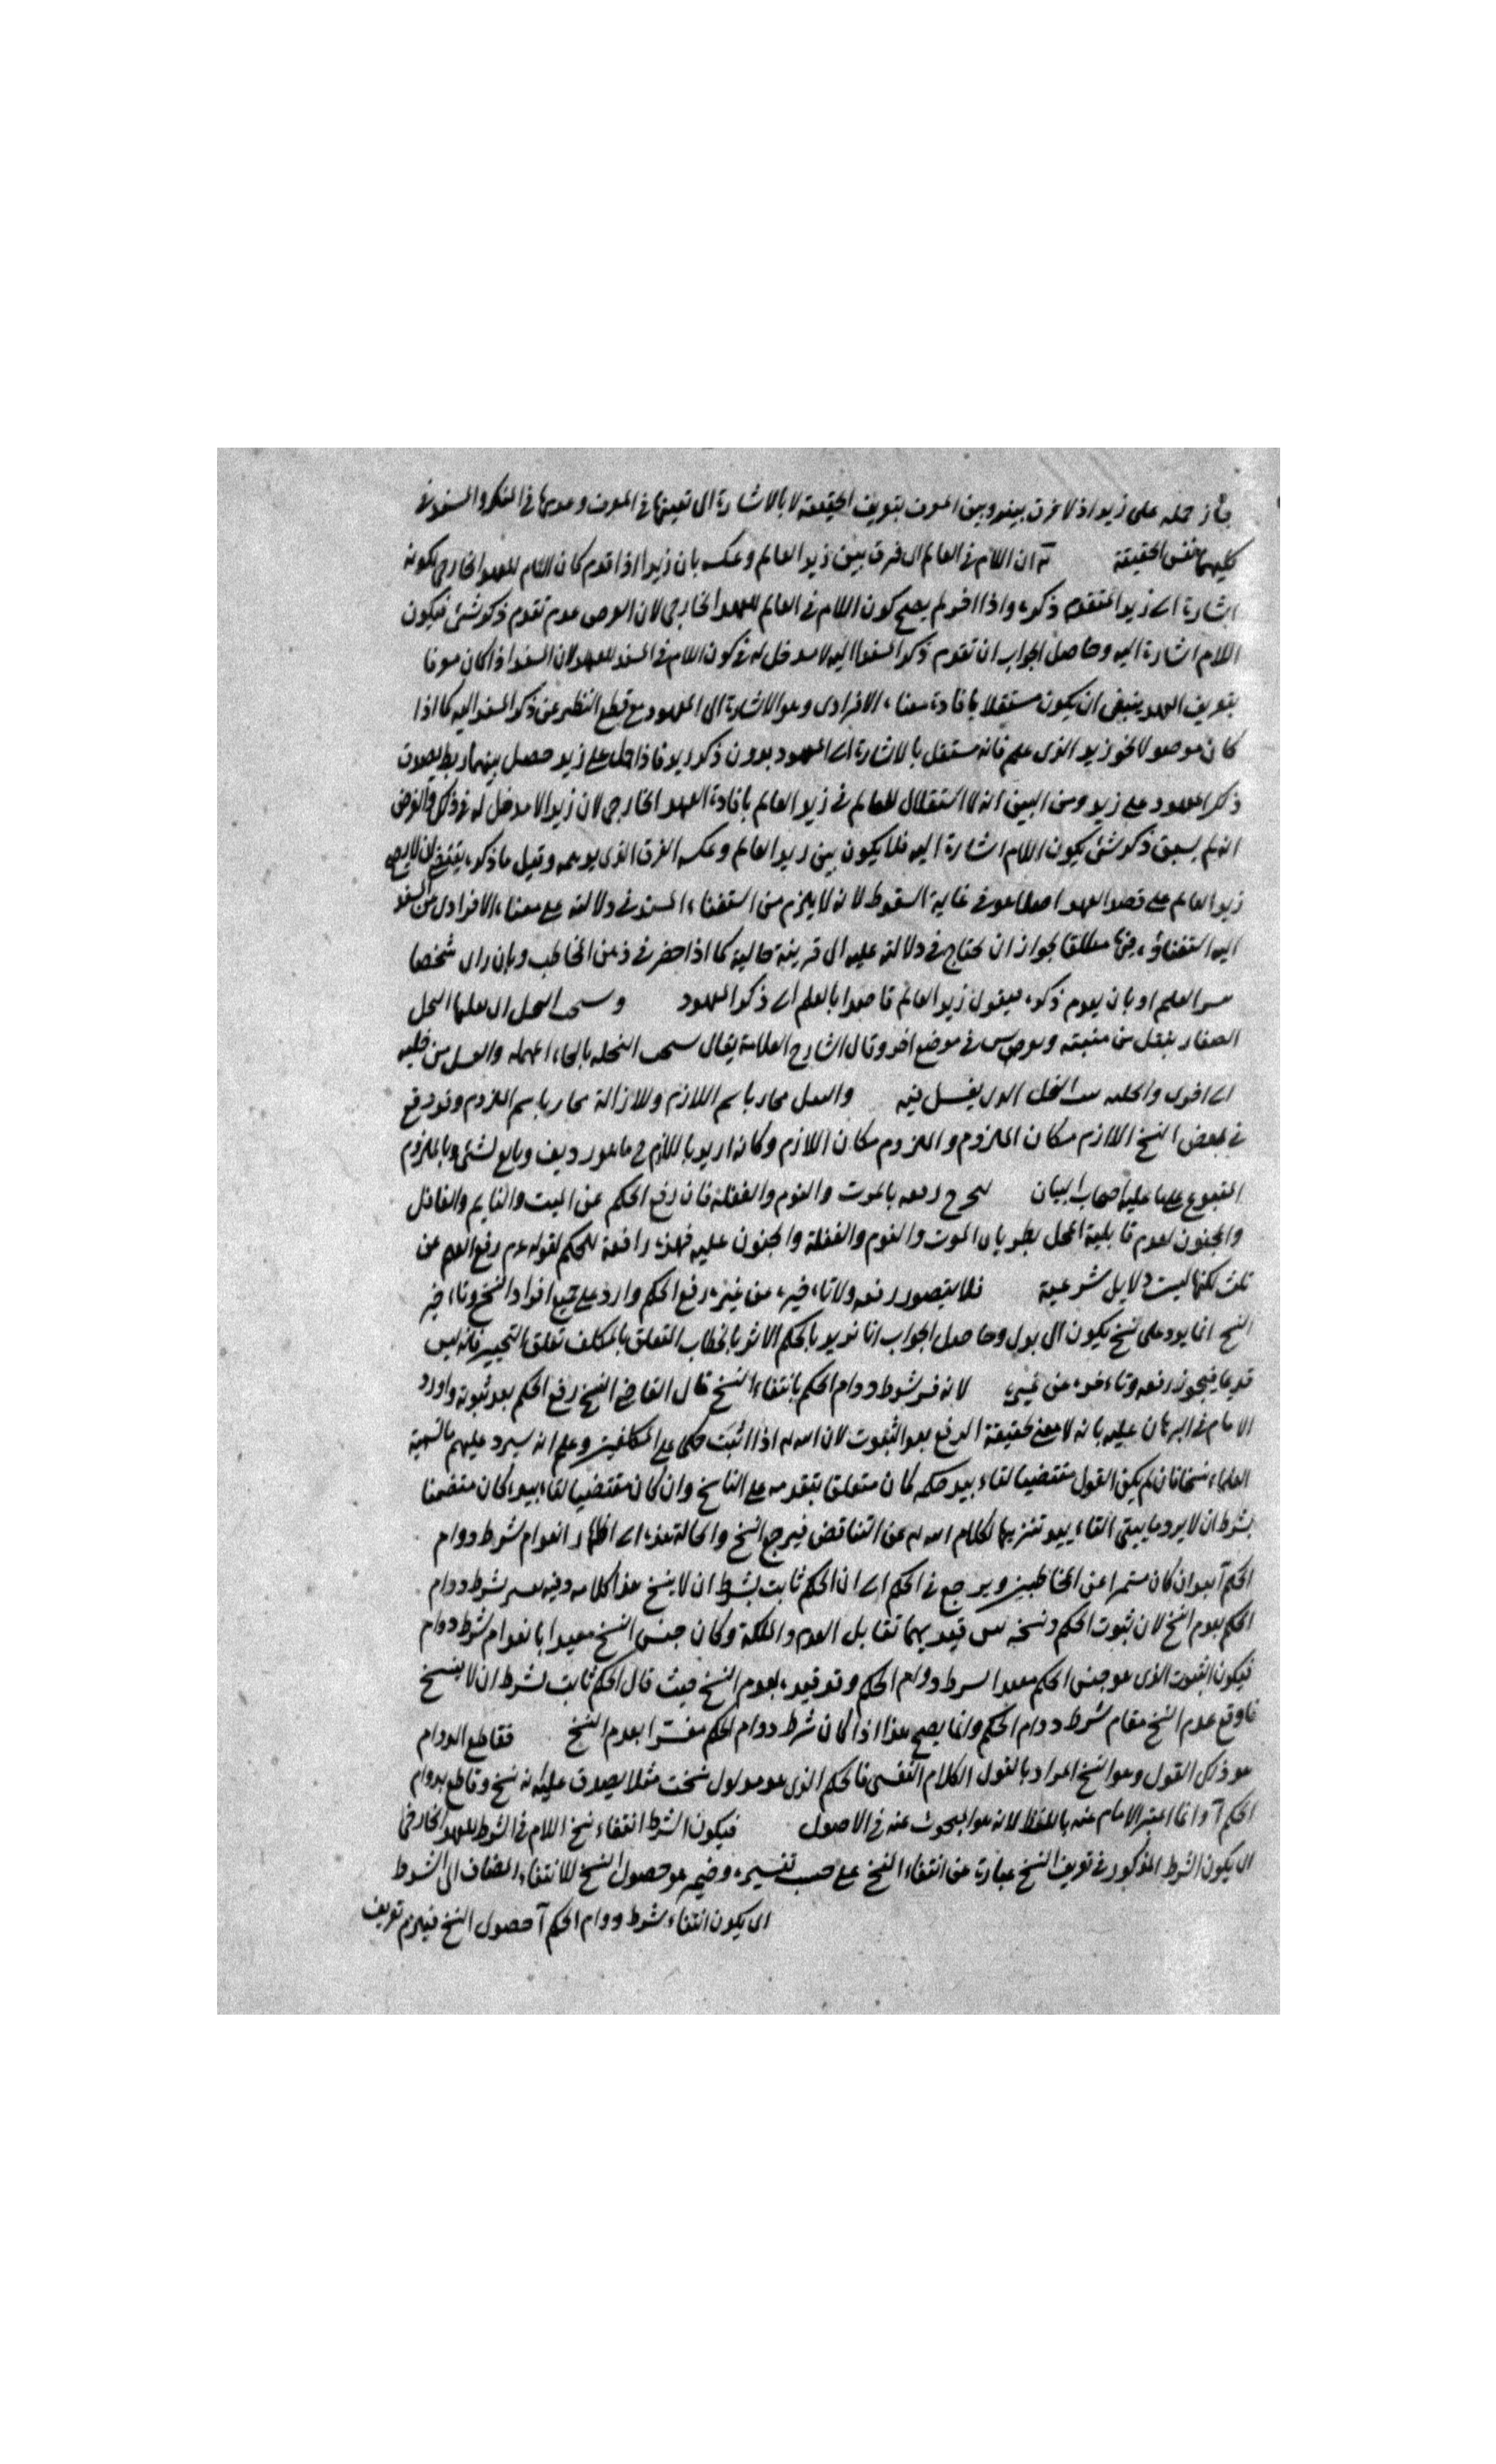 جاز حمله على زيد اذ لا فرق بينه وبين المعرف بتعريف الحقيقة لا بالاشارة الى تعينها في المعرف وعدمها في المنكر والمسند في
كليهما نفس الحقيقة ان اللام في العالم الفرق بين زيد العالم وعكسه بان زيدا اذا قدم كان اللام للعهد الخارجي لكونه
اشارة الى زيد المتقدم ذكره واذا اخر لم يصح كون اللام في العالم للعهد الخارجي لان الفرض عدم تقدم ذكر شئ فيكون
اللام اشارة اليه وحاصل الجواب ان تقدم ذكر المسند اليه لا مدخل له في كون اللام في المسند للعهد لان المسند اذا كان معرفا
بتعريف العهد ينبغي ان يكون مستقلا بافادة معناه الافرادى وهو الاشارة الى المعهود مع قطع النظر عن ذكر المسند اليه كما اذا
كان موصولا نحو زيد الذى علم فانه مستقل بالاشارة الى المعهود بدون ذكر زيد فاذا حمل على زيد حصل بينهما ربط بصدق
ذكر المعهود على زيد ومن البين انه لا استقلال للعالم في زيد العالم بافادة العهد الخارجي لان زيدا لا مدخل له في ذلك والفرض
انه لم يسبق ذكر شئ يكون اللام اشارة اليه فلا يكون بين زيد العالم وعكسه الفرق الذى يوهمه وقيل ما ذكره يقتضي ان لا يصح
زيد العالم على قصد العهد اصلا وهو في غاية السقوط لانه لا يلزم من استغناء المسند في دلالته على معناه الافرادى عن المسند
اليه استغناؤه عنها مطلقا لجواز ان يحتاج في دلالته عليه الى قرينة حالية كما اذا حضر في ذهن المخاطب وبان راى شخصا
العلم او بان يعدم ذكره فيقول زيد العالم قاصدا بالعلم الى ذكر المعهود النحل
الصغار ينقل من منبته في موضع اخر وقال الشارح العلامة يقال النحلة بالحاء المهملة والعسل من خلية
الى اخرى والنقل باسم اللازم وللازالة باسم الملزوم وقد وقع
في بعض النسخ اللازم مكان الملزوم والملزوم مكان اللازم وكانه اريد باللازم ما هو رديف وتابع لشئ وبالملزوم
المتبوع على ما عليه اصحاب البيان ليخرج رفعه بالموت والنوم والغفلة فان رفع الحكم عن الميت والنايم والغافل
والمجنون لعدم قابلية المحل بطريان الموت والنوم والغفلة والجنون عليه فهذه رافعة للحكم لقوله عم رفع القلم عن
ثلث لكنها ليست دلايل شرعية فلا يتصور رفعه ولا تاخيره عن غيره رفع الحكم وارد على جميع افراد النسخ وتاخير
النسخ انما يرد على نسخ يكون الى بدل وحاصل الجواب انا نريد بالحكم الاثر بالخطاب المتعلق بالمكلف تعلق التنجيز فانه ليس
قديما فيجوز رفعه وتاخره عن غيره لانه فسر شرط دوام الحكم بانتفاء النسخ قال القاضي النسخ رفع الحكم بعد ثبوته واورد
الامام في البرهان عليه بانه لا معنى لحقيقة الرفع بعد الثبوت لان الله اذا اثبت حكما على المكلفين وعلم انه سيرد عليهم ما تسميه
العلماء نسخا فان لم يكن القول مقتضيا لتاءبيد حكمه كان متعلقا بتقدمه على الناسخ وان كان مقتضيا لتاءبيده كان متضمنا
بشرط ان لا يرد ما يبقى التاءبيد تنزيها لكلام الله عن التناقض فيرجع النسخ والحالة هذه الى اظهار انعدام شرط دوام
الحكم بعد ان كان مستمرا عن المخاطبين ويرجع في الحكم الى ان الحكم ثابت بشرط ان لا ينسخ هذا كلامه وفيه شرط دوام
الحكم بعدم النسخ لان ثبوت الحكم ونسخه قيديهما تقابل العدم والملكة وكان جنس النسخ مقيدا بانعدام شرط دوام
فيكون الثبوت الذى هو جنس الحكم مقيدا بشرط دوام الحكم بعدم النسخ حيث قال الحكم ثابت بشرط ان لا ينسخ
فاوقع عدم النسخ مقام شرط دوام الحكم وانما يصح هذا اذا كان شرط دوام الحكم مفسرا بعدم النسخ فقاطع الدوام
هو ذلك القول وهو النسخ المراد بالقول الكلام النفسى فالحكم الذى هو مدلول نسخت مثلا يصدق عليه انه نسخ وقاطع بدوام
الحكم وانما اعتبر الامام عنه باللفظ لانه هو المبحوث عنه في الاصول فيكون الشرط انتفاء نسخ اللام في الشرط للعهد الخارجي
اى يكون الشرط المذكور في تعريف النسخ عبارة عن انتفاء النسخ على حسب تفسيره وضمير هو حصول النسخ للانتفاء المضاف الى الشرط
اى يكون انتفاء شرط دوام الحكم حصول النسخ فيلزم تعريف